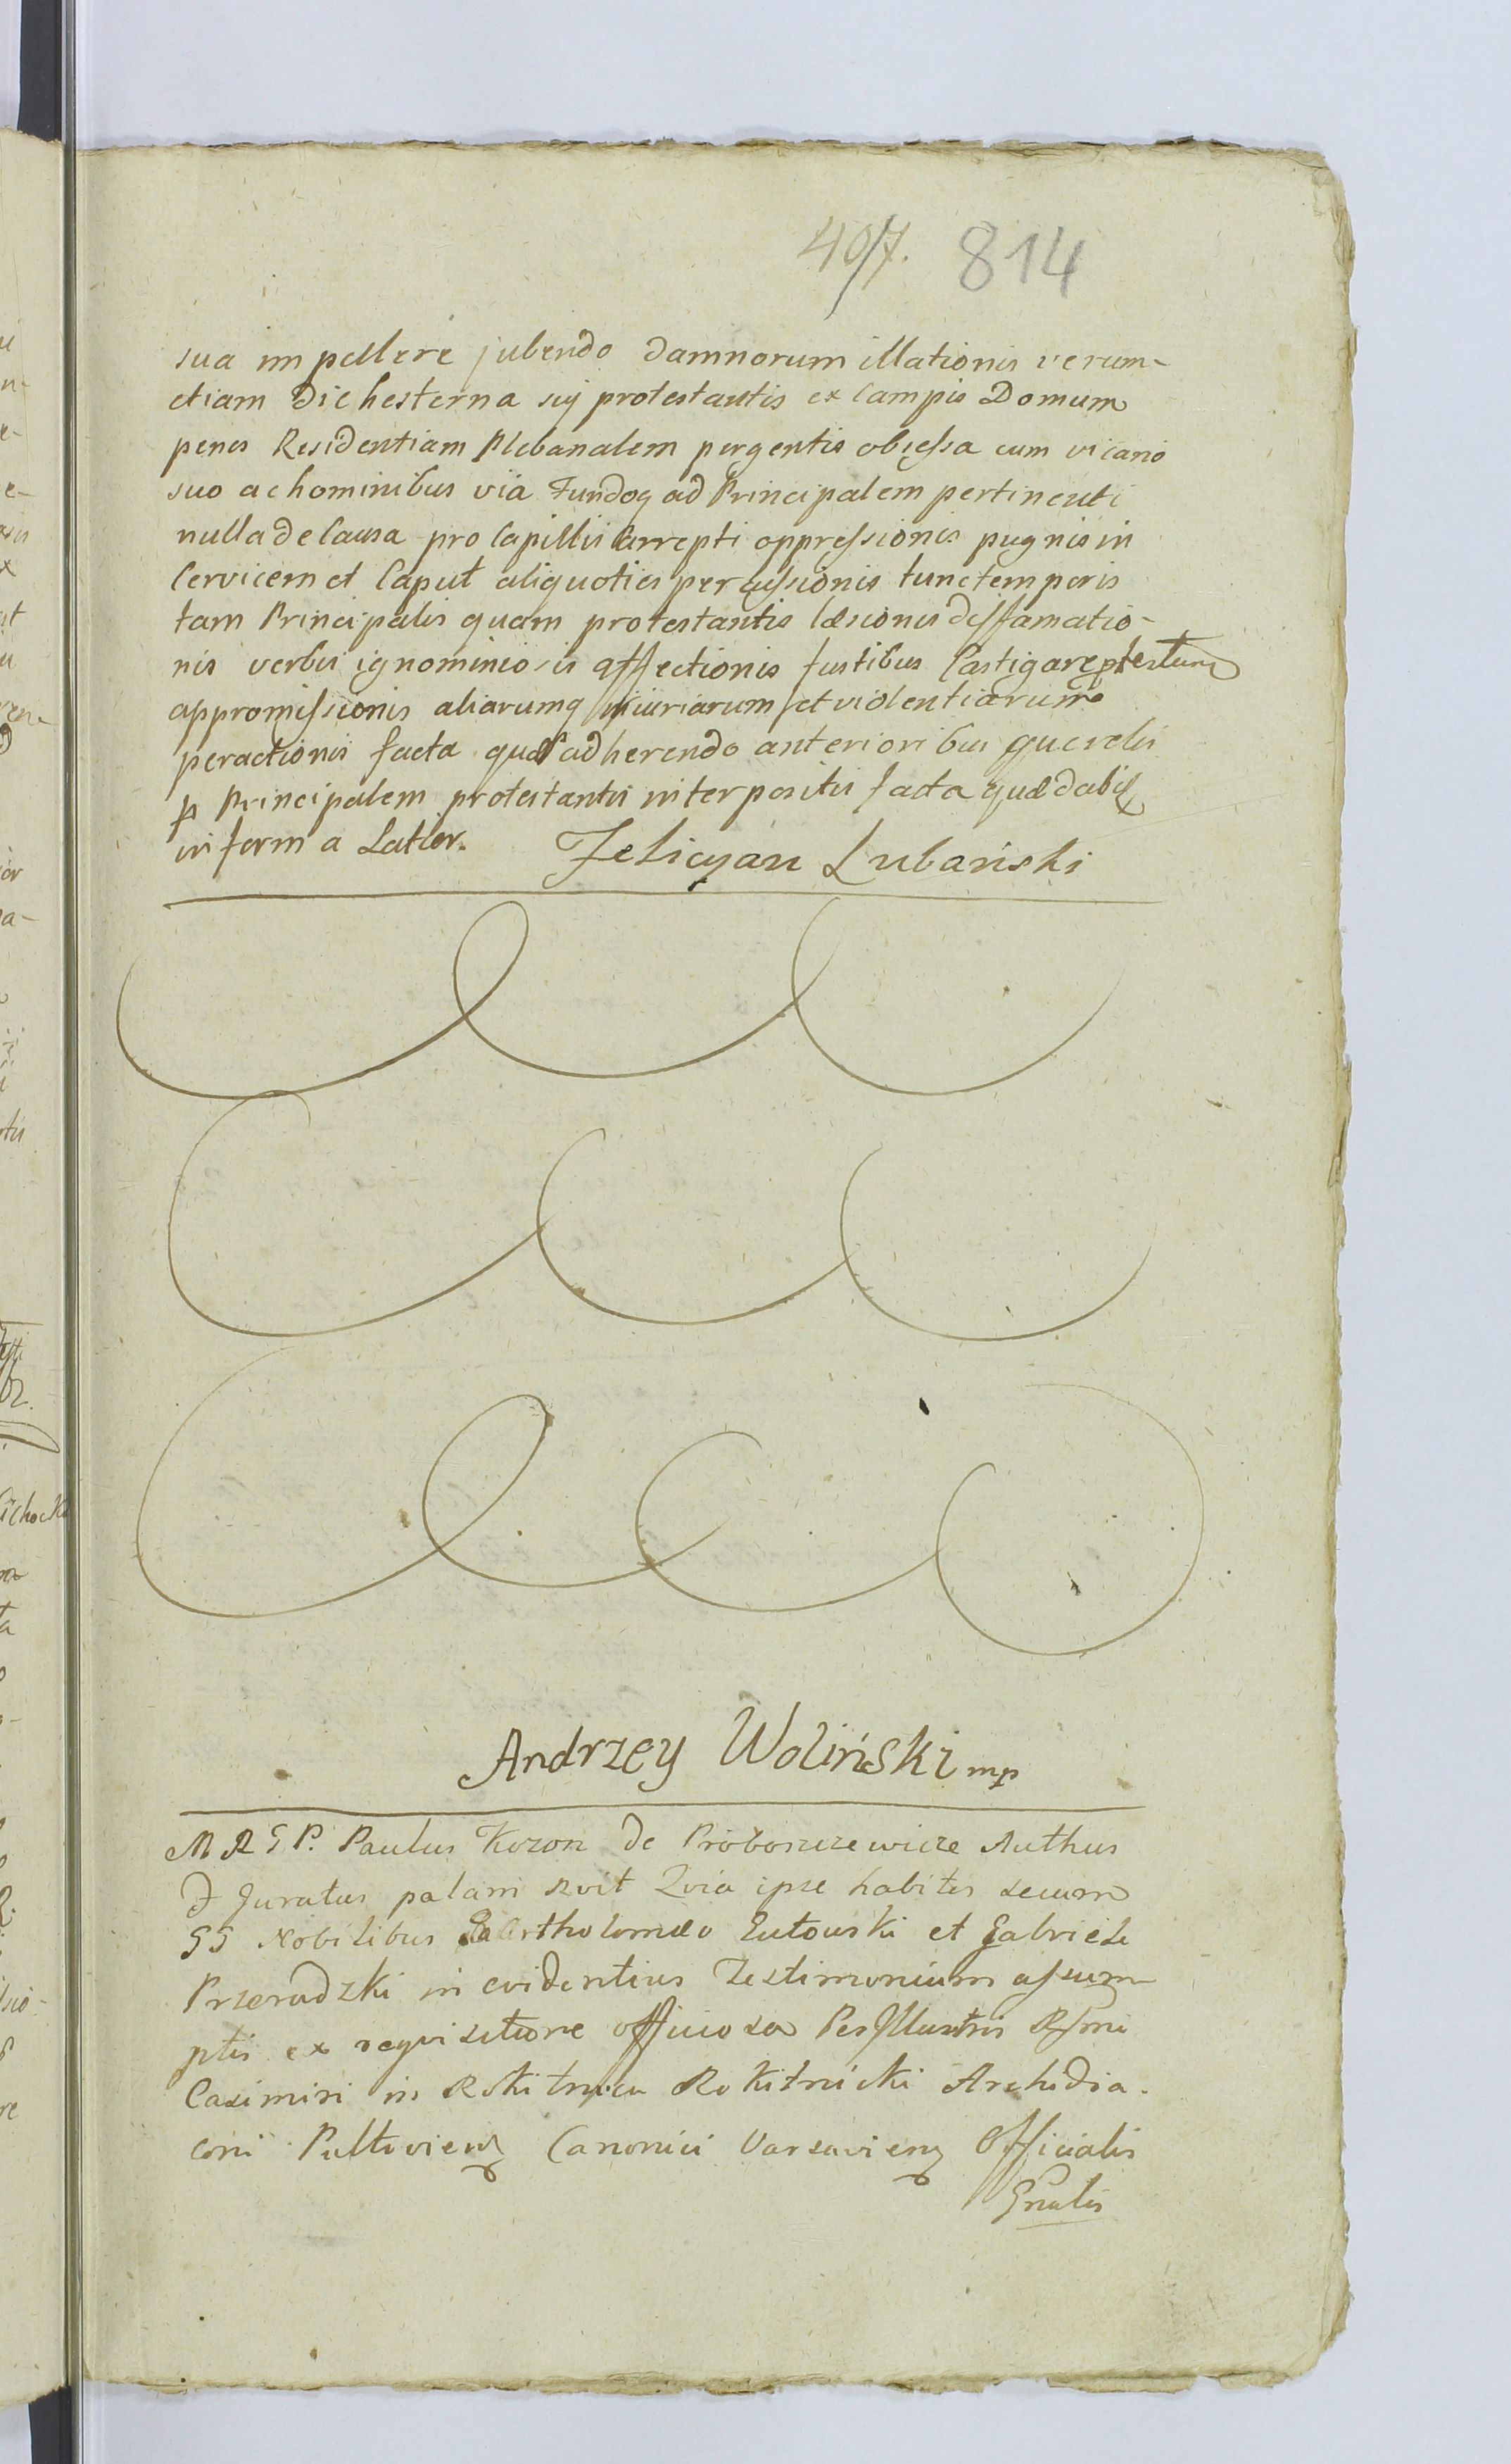 407. 814
sua impellere jubendo damnorum illationis verum-
etiam die hesterna sui protestantis ex Campis Domum
penes Residentiam Plebanalem pergentis obsessa cum vicario
suo ac hominibus via Fundoq ad Principalem pertinenti
nulla de Causa pro Capillis arrepti oppressionis pugnis in
Cervicem et Caput aliquoties percussionis tunc temporis
tam Principalis quam protestantis læsionis diffamatio-
nis verbis ignominiosis affectionis fustibus Castigare
appromissionis aliarumq injuriarum et violentiarum
peractionis facta quæ adherendo anterioribus querelis
p Principalem protestantis interpositis facta quæ dabit
in forma Latior. Felicyan Lubański
Andrzey Woliński mp
M R G P. Paulus Kozon de Proboszczewicze Authus
D Juratus palam Rvit Qvia ipse habitis secum
GG Nobilibus Bartholomæo Lutowski et Gabriele
Przeradzki in evidentius Testimonium assum-
ptis ex reqvisitione officiosa PerIllustris Rssmi
Casimiri in Rokitnica Rokitnicki Archidia-
coni Pultoviens Canonici Varsaviens Officialis
Gnalis